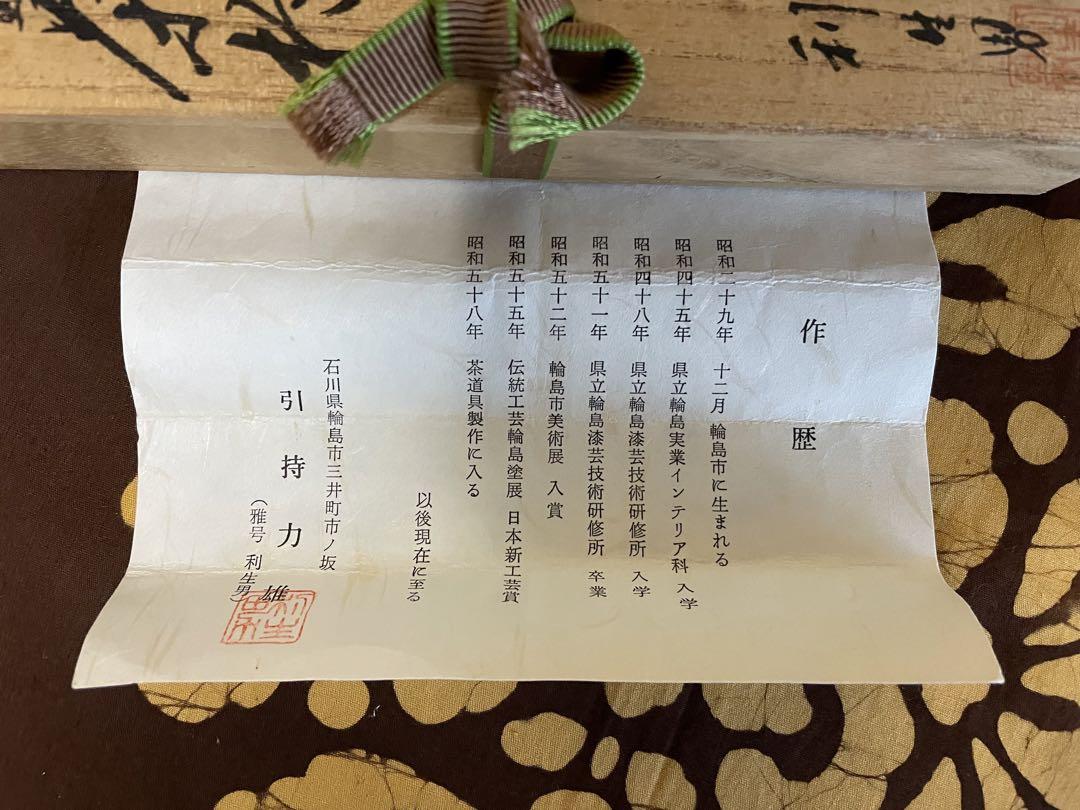 利生男
作歴
昭和二十九年 十二月 輪島市に生まれる
昭和四十五年 県立輪島実業インテリア科 入学
昭和四十八年 県立輪島漆芸技術研修所 入学
昭和五十一年 県立輪島漆芸技術研修所 卒業
昭和五十二年 輪島市美術展 入賞
昭和五十五年 伝統工芸輪島塗展 日本新工芸賞
昭和五十八年 茶道具製作に入る
以後現在に至る
石川県輪島市三井町市ノ坂
引持力雄
（雅号 利生男）